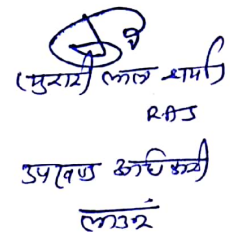 (मुरारी लाल शर्मा)
RAS
उपखण्ड अधिकारी
लाडनूं